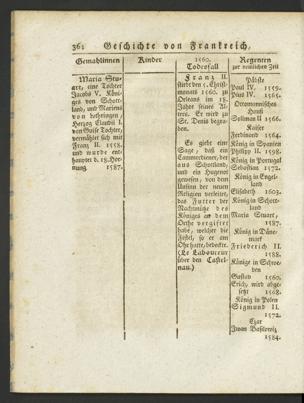 361 Geschichte von Frankreich,
Gemahlinnen
Maria Stu-
art, eine Tochter
Jacobs V. Köni-
ges von Schott-
land, und Mariens
von Lothringen,
Herzog Claudii I.
von Guise Tochter,
vermählet sich mit
Franz II. 1558.
und wurde ent-
hauptet d. 18. Hor-
nung 1587.
Kinder
1560.
Todesfall
Franz II.
stirbt den 5. Christ-
monats 1560. zu
Orleans im 18.
Jahre seines Al-
ters. Er wird zu
St. Denis begra-
ben.
Es giebt eine
Sage, daß ein
Cammerdiener, der
aus Schottland,
und ein Hugenot
gewesen, von dem
Unsinn der neuen
Religion verleitet,
das Futter der
Nachtmütze des
Königes an dem
Orthe vergiftet
habe, welcher die
Fistel, so er am
Ohr hatte, bedeckte.
(Le Laboureur
über den Castel-
nau.)
Regenten
zur nemlichen Zeit
Päbste
Paul IV. 1559.
Pius IV. 1565.
Ottomannisches
Hauß
Soliman II 1566.
Kaiser
Ferdinand 1564.
König in Spanien
Philipp II. 1598.
König in Portugal
Sebastian 1572.
König in Engel-
land
Elisabeth 1603.
König in Schott-
land
Maria Stuart,
1587.
König in Däne-
mark
Friederich II.
1588.
Könige in Schwe-
den
Gustav 1560.
Erich, wird abge-
setzt 1568.
König in Polen
Sigmund II.
1572.
Czar
Iwan Basilowiz
1584.